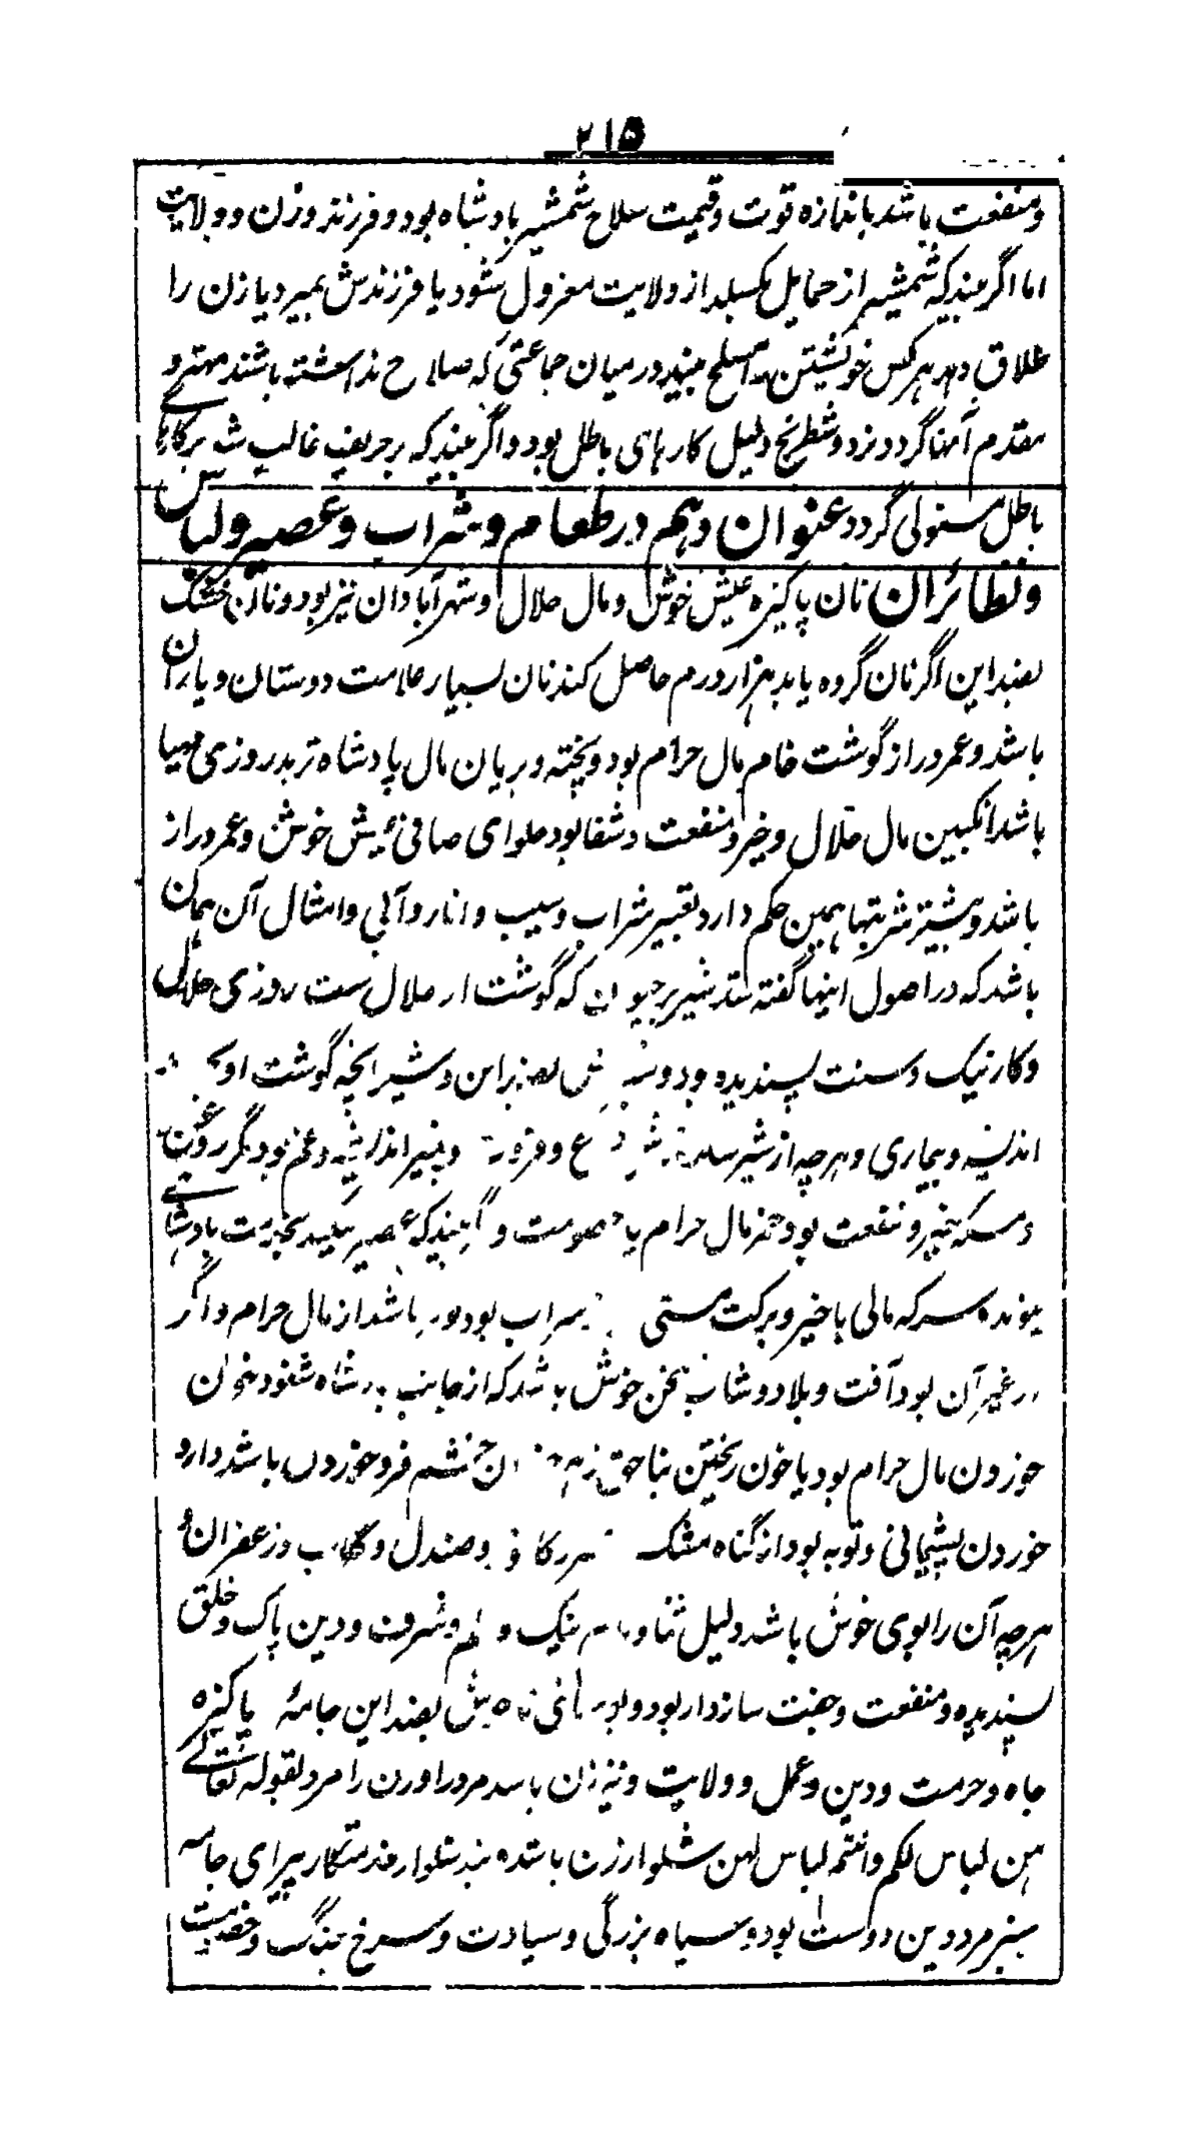 ۲۱۵
ومنفعت باشد باندازه قوت وقیمت سلاح شمشیر بادشاه بود و فرزند و زن و ولایت
اما اگر بیند که شمشیر از حمایل بگسلد از ولایت معزول شود یا فرزندش بمیرد یا زن را
طلاق دهد هرکس خویشتن مسلح بیند در میان جماعتی که صلاح نداشته باشند مهتر و
مقدم آنها گردد نرد و شطرنج دلیل کارهای باطل بود و اگر بیند که بر حریف غالب شد برکارها
باطل مستولی گردد عنوان دهم در طعام و شراب وعصیر ولباس
ونظائر ان نان پاکیزه عیش خوش و مال حلال و شهر آبادان نیز بود و نان خشک
بضد این اگر نان گروه یابد هزار درم حاصل کند نان بسیار علامت دوستان و یاران
باشد و عمر دراز گوشت خام مال حرام بود و پخته و بریان مال پادشاه تربد روزی مهیا
باشد انگبین مال حلال و خیر و منفعت و شفا بود حلوای صافی عیش خوش و عمر دراز
باشد و بیشتر شربتها همین حکم دارد تعبیر شراب و سیب و انار و آبی و امثال آن همان
باشد که در اصول اینها گفته شد شیر حیوان که گوشت او حلال ست روزی حلال
و کار نیک و سنت پسندیده بود بضد این و شیر انچه گوشت او
اندیشه و بیماری و هرچه از شیر و پنیر اندیشه و غم بود مگر روغن
و مسکه خیر و منفعت بود خمر مال حرام یا خصومت و اگر بیند که عصیر میگیرد بخدمت پادشاهی
پیوندد سرکه مالی با خیر و برکت مستی شراب بود باشد از مال حرام و اگر
از غیر آن بود آفت و بلا دوشاب سخن خوش باشد که از جانب پادشاه شنود خون
خوردن مال حرام بود یا خون ریختن بناحق زهر خشم فرو خوردن باشد دارو
خوردن پشیمانی و توبه بود از گناه مشک و صندل و گلاب و زعفران و
هرچه آن را بوی خوش باشد دلیل ثنا و نام نیک و علم و شرف و دین پاک و خلق
پسندیده و منفعت و جفت سازدار بود بضد این جامهٔ پاکیزه
جاه و حرمت و دین و عمل و ولایت و نیز زن باشد مرد را و زن را مرد لقوله تعالے
هن لباس لکم وانتم لباس لهن شلوار زن باشد بند شلوار خدمتگار پیرای جامه
سبز مرد دین دوست بود و سیاه بزرگی و سیادت و سرخ جنگ و خصومت